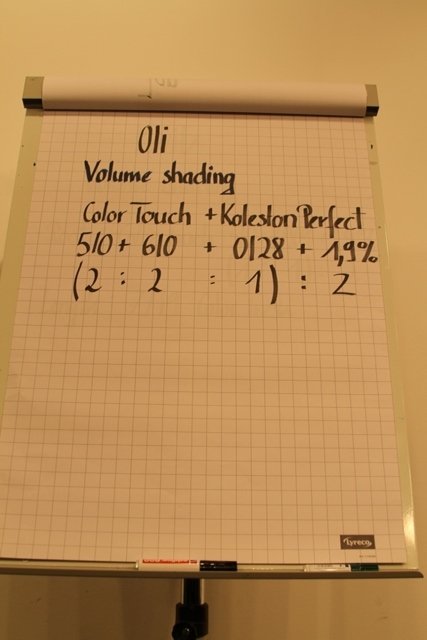 Oli
Volume shading
Color Touch + Koleston Perfect
5/0 + 6/0 + 0/28 + 1,9%
(2 : 2 : 1) : 2
Lyreco